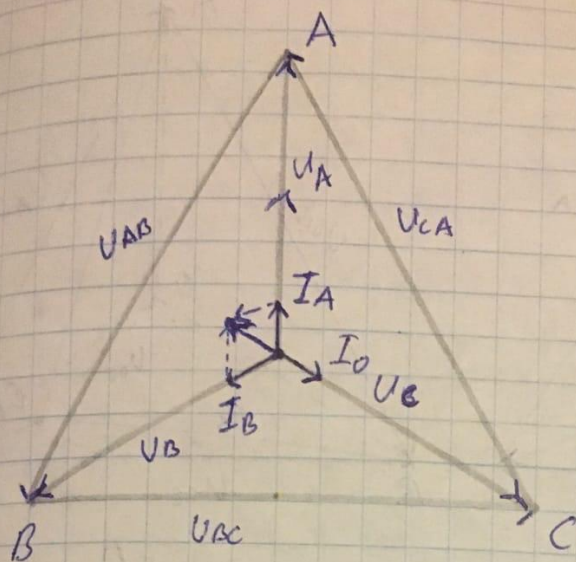 A
U_A
U_AB
U_CA
I_A
I_O
U_C
I_B
U_B
B
U_BC
C